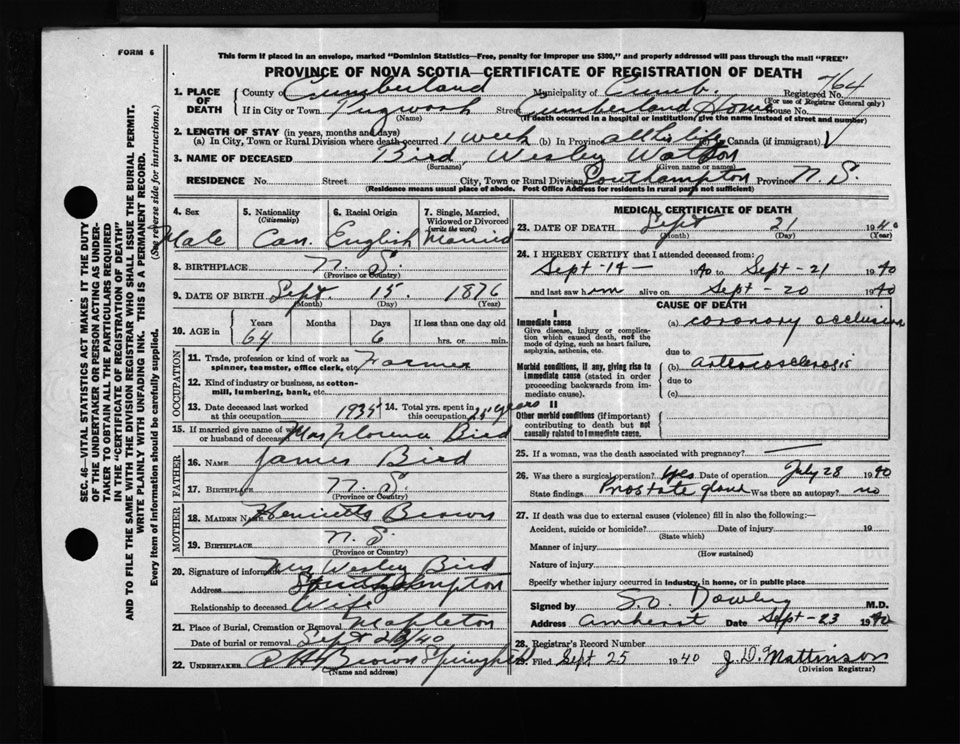 FORM 6
This form if placed in an envelope, marked "Dominion Statistics—Free, penalty for improper use $300," and properly addressed will pass through the mail "FREE"
PROVINCE OF NOVA SCOTIA—CERTIFICATE OF REGISTRATION OF DEATH
SEC. 46—VITAL STATISTICS ACT MAKES IT THE DUTY
OF THE UNDERTAKER OR PERSON ACTING AS UNDER-
TAKER TO OBTAIN ALL THE PARTICULARS REQUIRED
IN THE "CERTIFICATE OF REGISTRATION OF DEATH"
AND TO FILE THE SAME WITH THE DIVISION REGISTRAR WHO SHALL ISSUE THE BURIAL PERMIT.
WRITE PLAINLY WITH UNFADING INK. THIS IS A PERMANENT RECORD.
Every item of Information should be carefully supplied. (See reverse side for instructions.)
1. PLACE OF DEATH County of Cumberland Municipality of Cumb. Registered No. 764
(For use of Registrar General only)
If in City or Town Pugwash Street Cumberland Home House No.
(Name) (If death occurred in a hospital or institution, give the name instead of street and number)
2. LENGTH OF STAY (in years, months and days)
(a) In City, Town or Rural Division where death occurred 1 week (b) In Province all his life (c) In Canada (if immigrant)
3. NAME OF DECEASED Bird, Wesley Watson
(Surname) (Given name or names)
RESIDENCE No. Street City, Town or Rural Division Southampton Province N. S.
(Residence means usual place of abode. Post Office Address for residents in rural parts not sufficient)
4. Sex 5. Nationality (Citizenship) 6. Racial Origin 7. Single, Married, Widowed or Divorced (write the word)
Male Can. English Married
8. BIRTHPLACE N. S.
(Province or Country)
9. DATE OF BIRTH Sept. 15. 1876
(Month) (Day) (Year)
10. AGE in Years Months Days If less than one day old
64 6 hrs. or min.
OCCUPATION
11. Trade, profession or kind of work as spinner, teamster, office clerk, etc. Farmer
12. Kind of industry or business, as cotton-mill, lumbering, bank, etc.
13. Date deceased last worked at this occupation 1935 14. Total yrs. spent in this occupation 25 years
15. If married give name of wife or husband of deceased Mrs Florena Bird
FATHER
16. Name James Bird
17. Birthplace N. S.
(Province or Country)
MOTHER
18. Maiden Name Henrietta Brown
19. Birthplace N. S.
(Province or Country)
20. Signature of informant Mrs Wesley Bird
Address Southampton
Relationship to deceased Wife
21. Place of Burial, Cremation or Removal Mapleton
Date of burial or removal Sept 23/40
22. UNDERTAKER Brown Springhill
(Name and address)
MEDICAL CERTIFICATE OF DEATH
23. DATE OF DEATH Sept 21 1940
(Month) (Day) (Year)
24. I HEREBY CERTIFY that I attended deceased from:
Sept-14- 1940 to Sept-21 1940
and last saw him alive on Sept-20 1940
CAUSE OF DEATH
I
Immediate cause
Give disease, injury or complication which caused death, not the mode of dying, such as heart failure, asphyxia, asthenia, etc.
(a) coronary occlusion
due to
Morbid conditions, if any, giving rise to immediate cause (stated in order proceeding backwards from immediate cause).
(b) arteriosclerosis
due to
(c)
II
Other morbid conditions (if important) contributing to death but not causally related to immediate cause.
25. If a woman, was the death associated with pregnancy?
26. Was there a surgical operation? Yes Date of operation July 28 1940
State findings Prostate gland Was there an autopsy? no
27. If death was due to external causes (violence) fill in also the following:—
Accident, suicide or homicide? Date of injury 19
(State which)
Manner of injury
(How sustained)
Nature of injury
Specify whether injury occurred in industry, in home, or in public place
Signed by M.D.
Address Amherst Date Sept-23 1940
28. Registrar's Record Number
29. Filed Sept 25 1940 J. D. Mattinson
(Division Registrar)